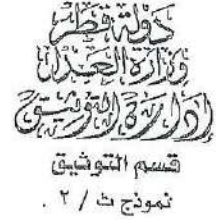 دولة قطر
وزارة العدل
إدارة التوثيق
قسم التوثيق
نموذج ث / ٢ .